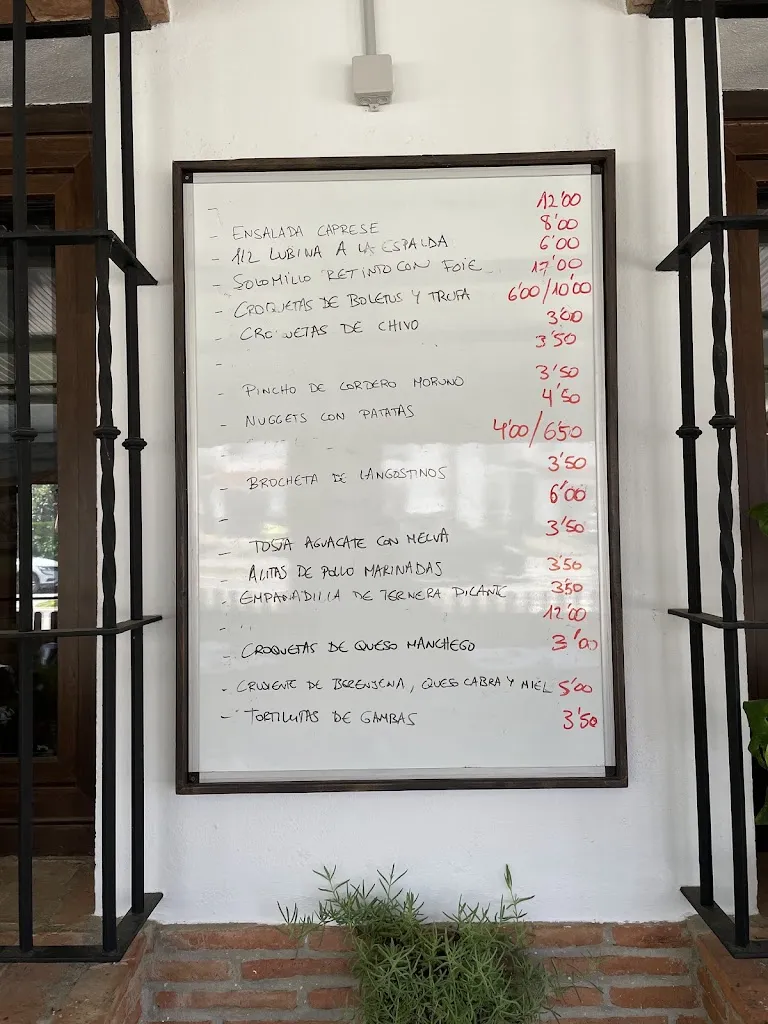 - 12'00
- ENSALADA CAPRESE 8'00
- 1/2 LUBINA A LA ESPALDA 6'00
- SOLOMILLO RETINTO CON FOIE 17'00
- CROQUETAS DE BOLETUS Y TRUFA 6'00/10'00
- CROQUETAS DE CHIVO 3'00
- 3'50
- PINCHO DE CORDERO MORUNO 3'50
- NUGGETS CON PATATAS 4'50
- 4'00/6'50
- BROCHETA DE LANGOSTINOS 3'50
- 6'00
- TOSTA AGUACATE CON MELVA 3'50
- ALITAS DE POLLO MARINADAS 3'50
- EMPANADILLA DE TERNERA PICANTE 3'50
- 12'00
- CROQUETAS DE QUESO MANCHEGO 3'00
- CRUJIENTE DE BERENJENA, QUESO CABRA Y MIEL 5'00
- TORTILLITAS DE GAMBAS 3'50